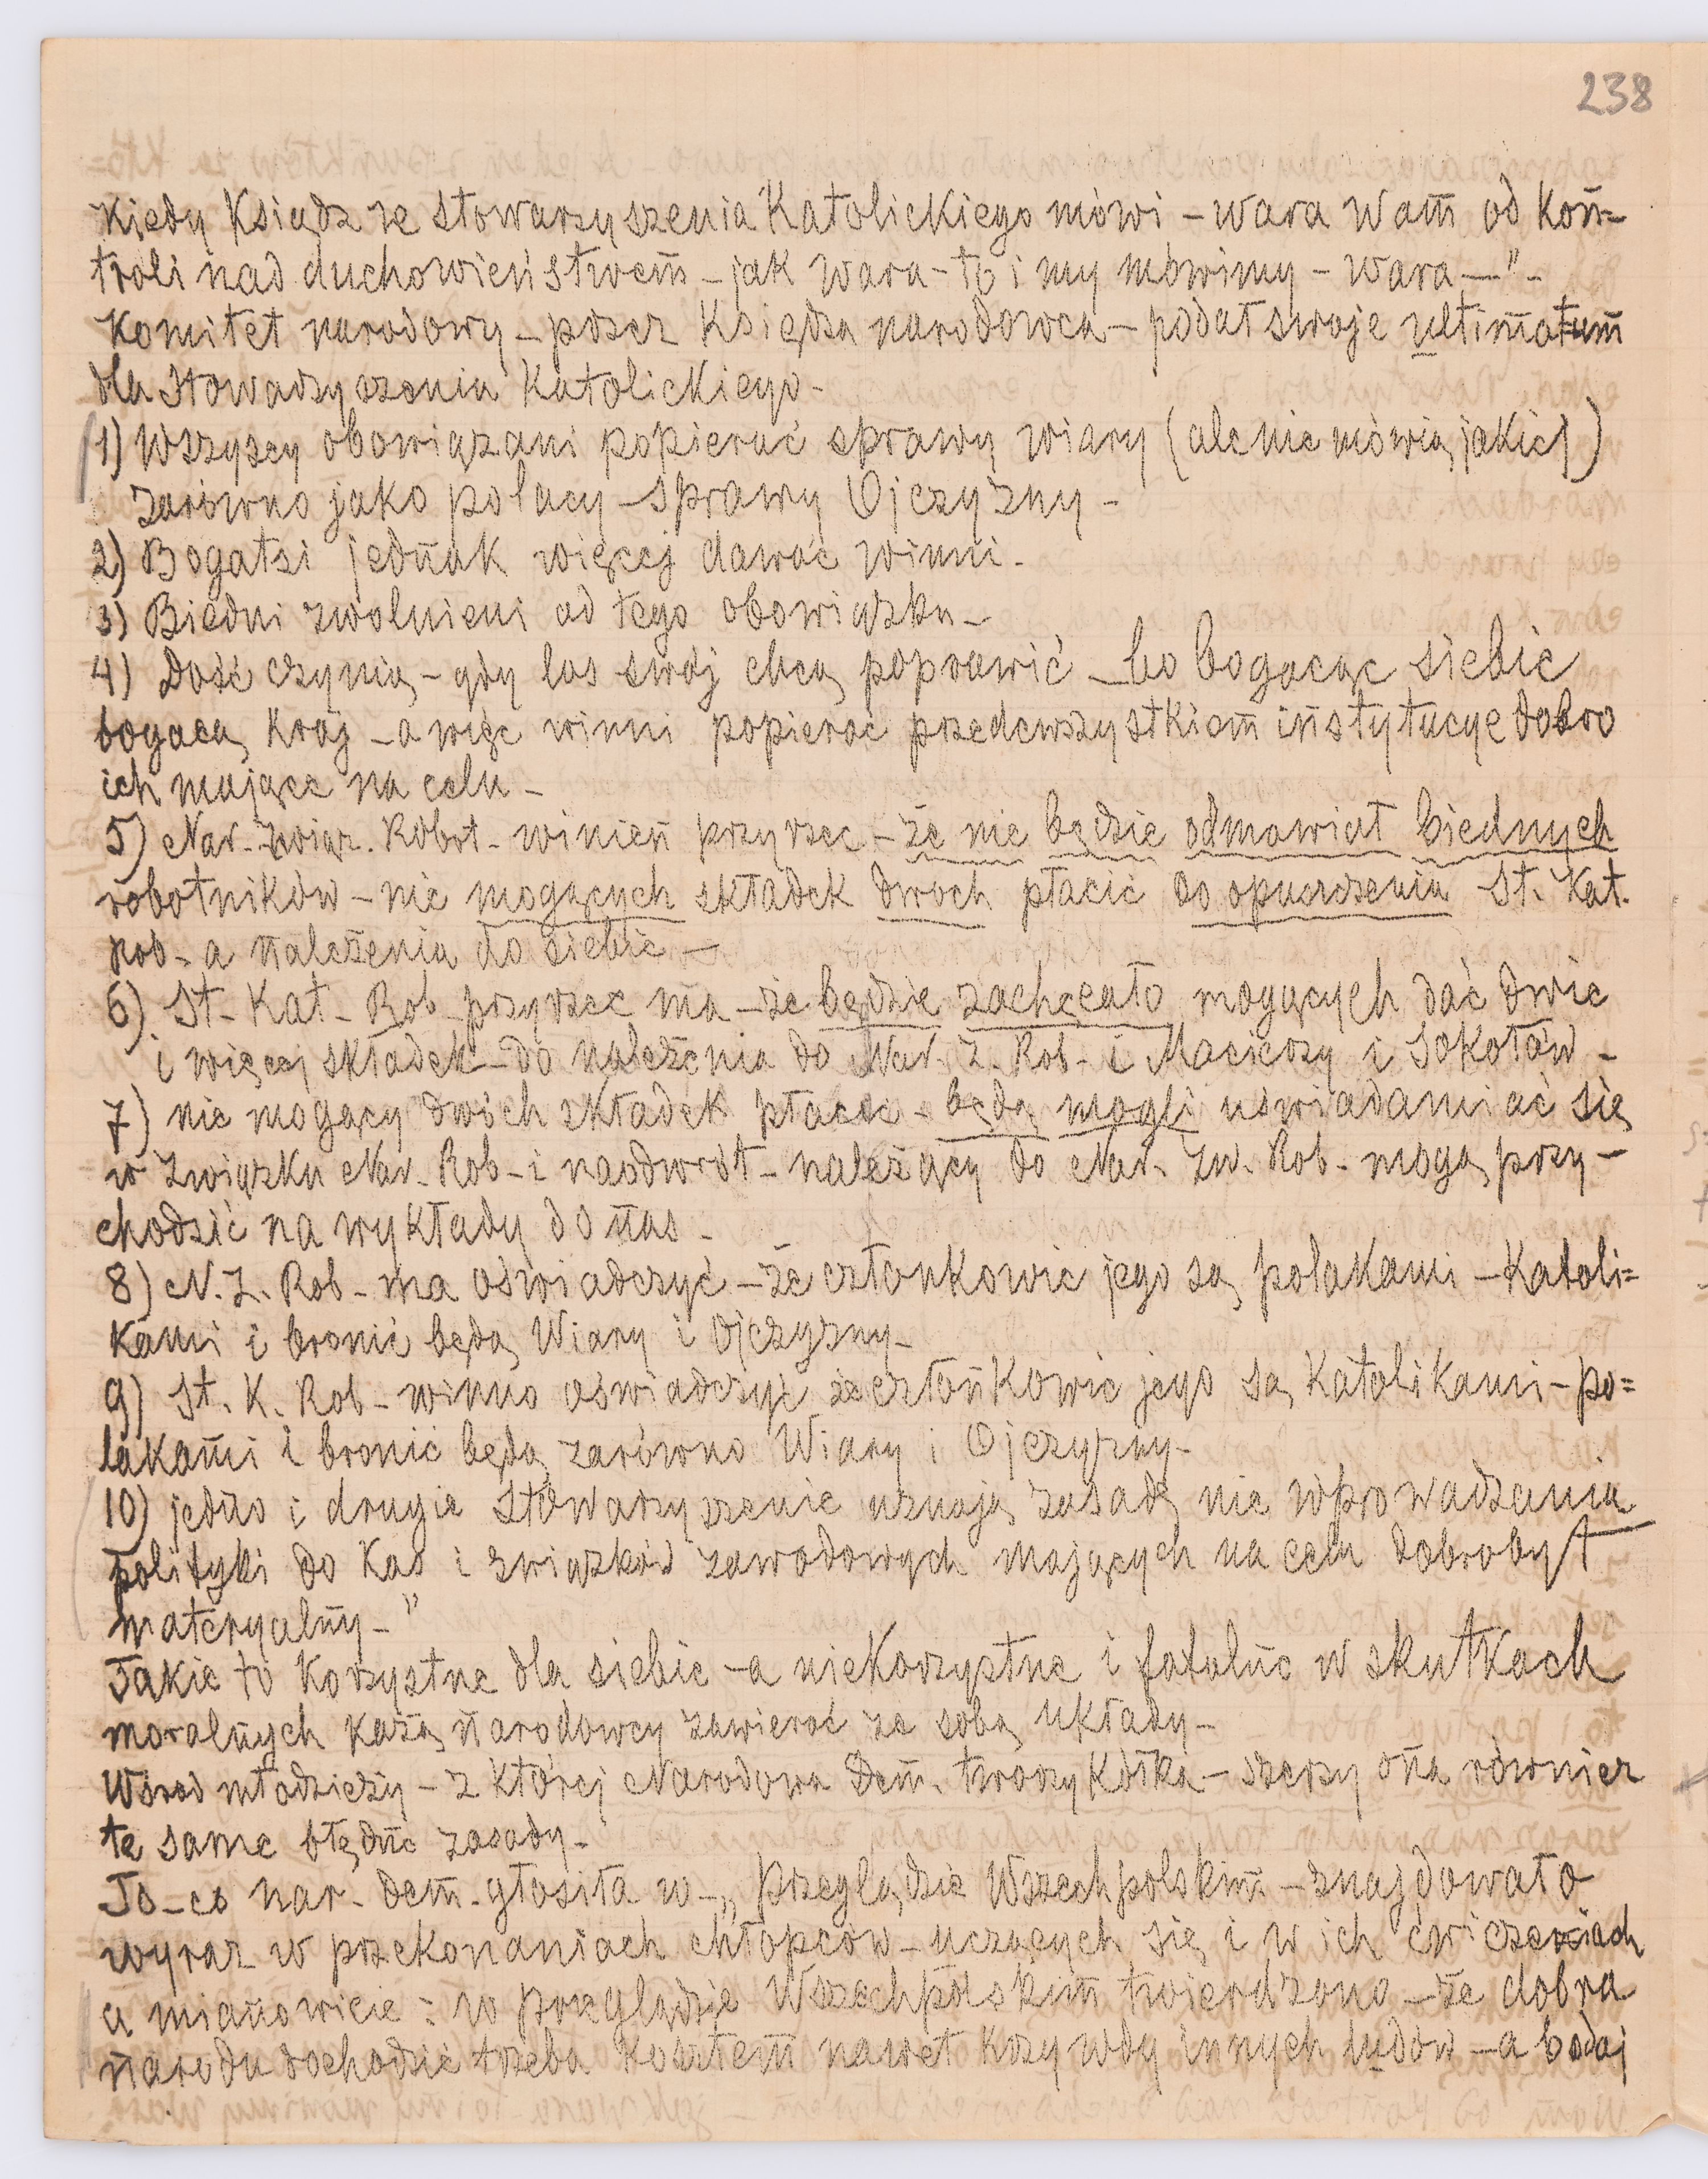 238
Kiedy Ksiądz ze stowarzyszenia Katolickiego mówi – wara Wam od kon=
troli nad duchowieństwem – jak wara – to i my mówimy – wara —" –
Komitet narodowy – przez Księdza narodowca – podał swoje ultimatum
dla Stowarzyszenia Katolickiego –
1) Wszyscy obowiązani popierać sprawy wiary (ale nie mówią jakiej)
zarówno jako polacy – sprawy Ojczyzny –
2) Bogatsi jednak więcej dawać winni –
3) Biedni zwolnieni od tego obowiązku –
4) Dość czynią – gdy los swój chcą poprawić – bo bogacąc siebie
bogacą Kraj – a więc winni popierać przedewszystkiem instytucye dobro
ich mające na celu –
5) Nar. Związ. Robot – winien przyrzec – że nie będzie odmawiał biednych
robotników – nie mogących składek dwóch płacić do opuszczenia St. Kat.
Rob – a należenia do siebie –
6) St – Kat – Rob – przyrzec ma – że będzie zachęcało mogących dać dwie
i więcej składek – do należenia do Nar. Z. Rob – i Macierzy i Sokołów –
7) nie mogący dwóch składek płacić – będą mogli uświadamiać się
w Związku Nar. Rob – i naodwrót – należący do Nar. Zw. Rob – mogą przy –
chodzić na wykłady do nas –
8) N. Z. Rob – ma oświadczyć – że członkowie jego są polakami – Katoli=
kami i bronić będą Wiary i Ojczyzny –
9) St. K. Rob – winno oświadczyć że członkowie jego są Katolikami – po=
lakami i bronić będą zarówno Wiary i Ojczyzny –
10) jedno i drugie Stowarzyszenie uznają zasadę nie wprowadzania
polityki do Kas i związków zawodowych mających na celu dobrobyt
materyalny –"
Takie to korzystne dla siebie – a niekorzystne i fatalne w skutkach
moralnych każą narodowcy zawierać ze sobą układy –
Wśród młodzieży – z której Narodowa Dem. tworzy Kółka – szerzy ona również
te same błędne zasady –
To – co nar – dem – głosiła w – „Przeglądzie Wszechpolskim – znajdowało
wyraz w przekonaniach chłopców – uczących się i w ich ćwiczeniach
a mianowicie: w przeglądzie Wszechpolskim twierdzono – że dobra
narodu dochodzić trzeba kosztem nawet krzywdy innych ludów – a bodaj